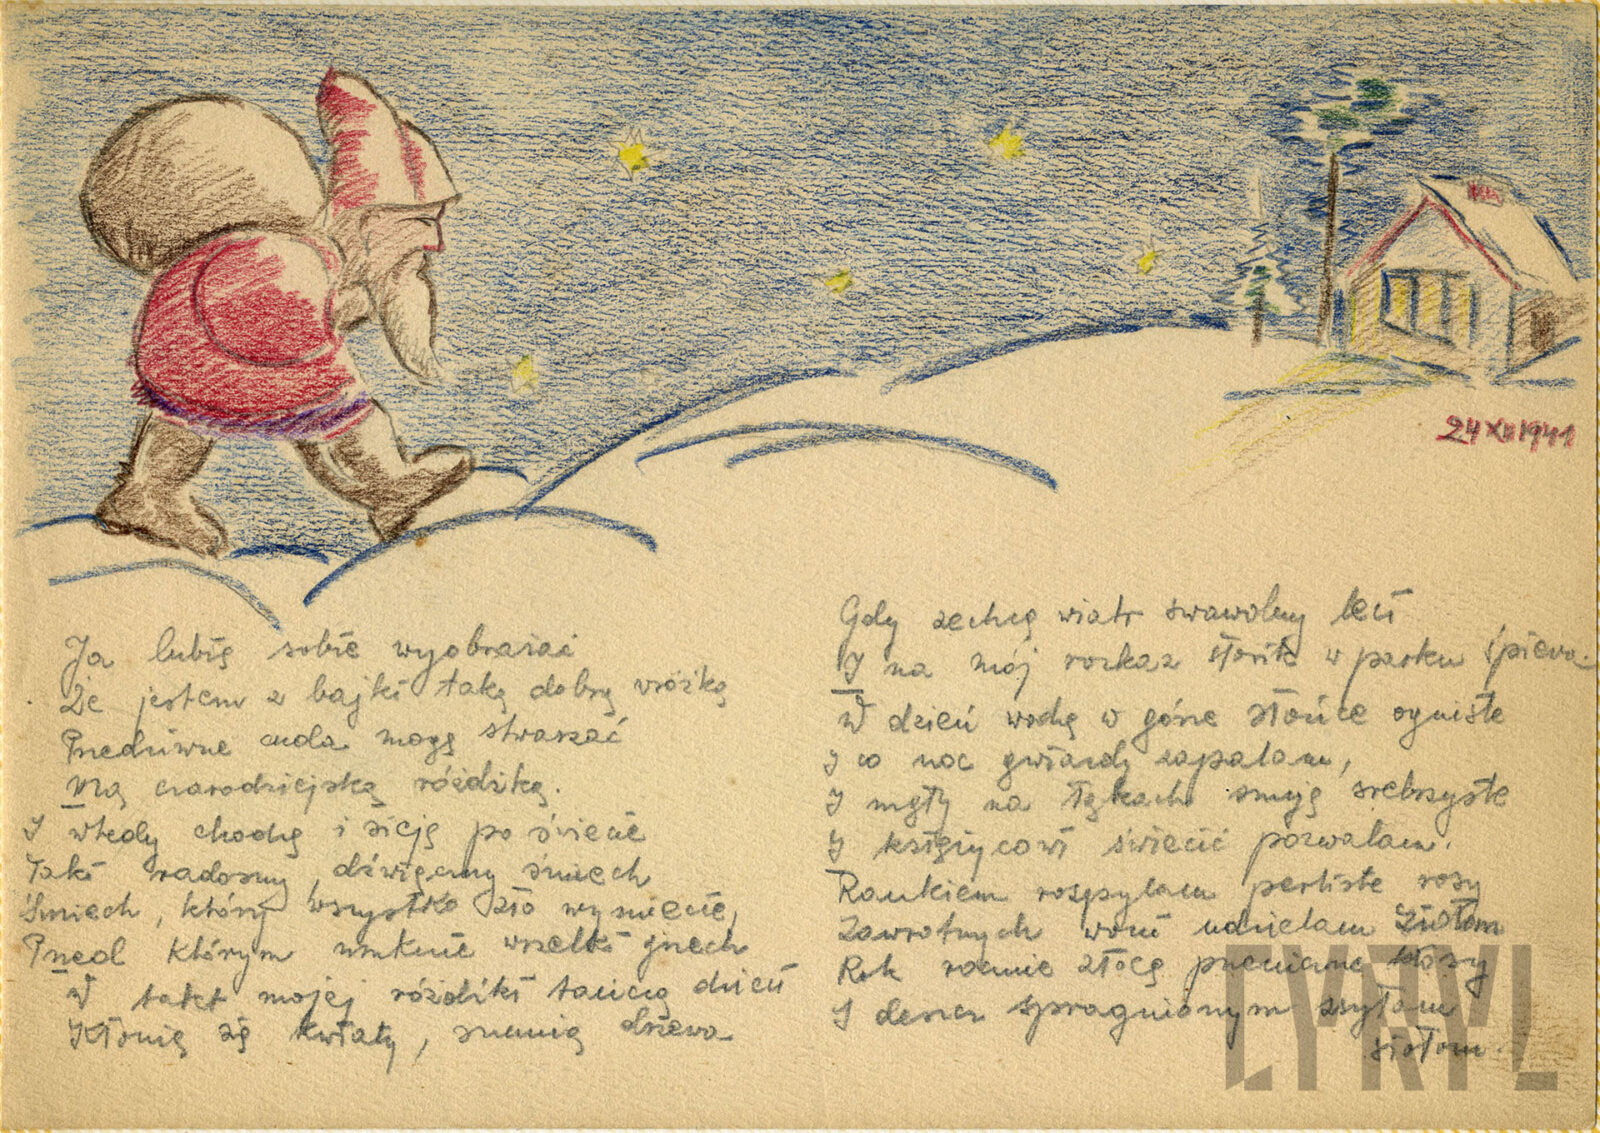 24 XII 1941
Ja lubię sobie wyobrażać
Że jestem z bajki taką dobrą wróżką
Przedziwne cuda mogę stwarzać
Mą czarodziejską różdżką.
I wtedy chodzę i sieję po świecie
Taki radosny, dźwięczny śmiech
Śmiech, który wszystko zło wymiecie,
Przed którym umknie wszelki grzech
W takt mojej różdżki tańczą dzieci
Kłonią się kwiaty, szumią drzewa
Gdy zechcę wiatr swawolny leci
I na mój rozkaz słowik w parku śpiewa.
W dzień wodzę w górze słońce ogniste
I co noc gwiazdy zapalam,
I mgły na łąkach snuję srebrzyste
I księżycowi świecić pozwalam.
Rankiem rozpylam perliste rosy
Zawrotnych woni udzielam ziołom
Rok rocznie złocę pszeniczne kłosy
I deszcz spragnionym zsyłam
siołom.
LYRYL